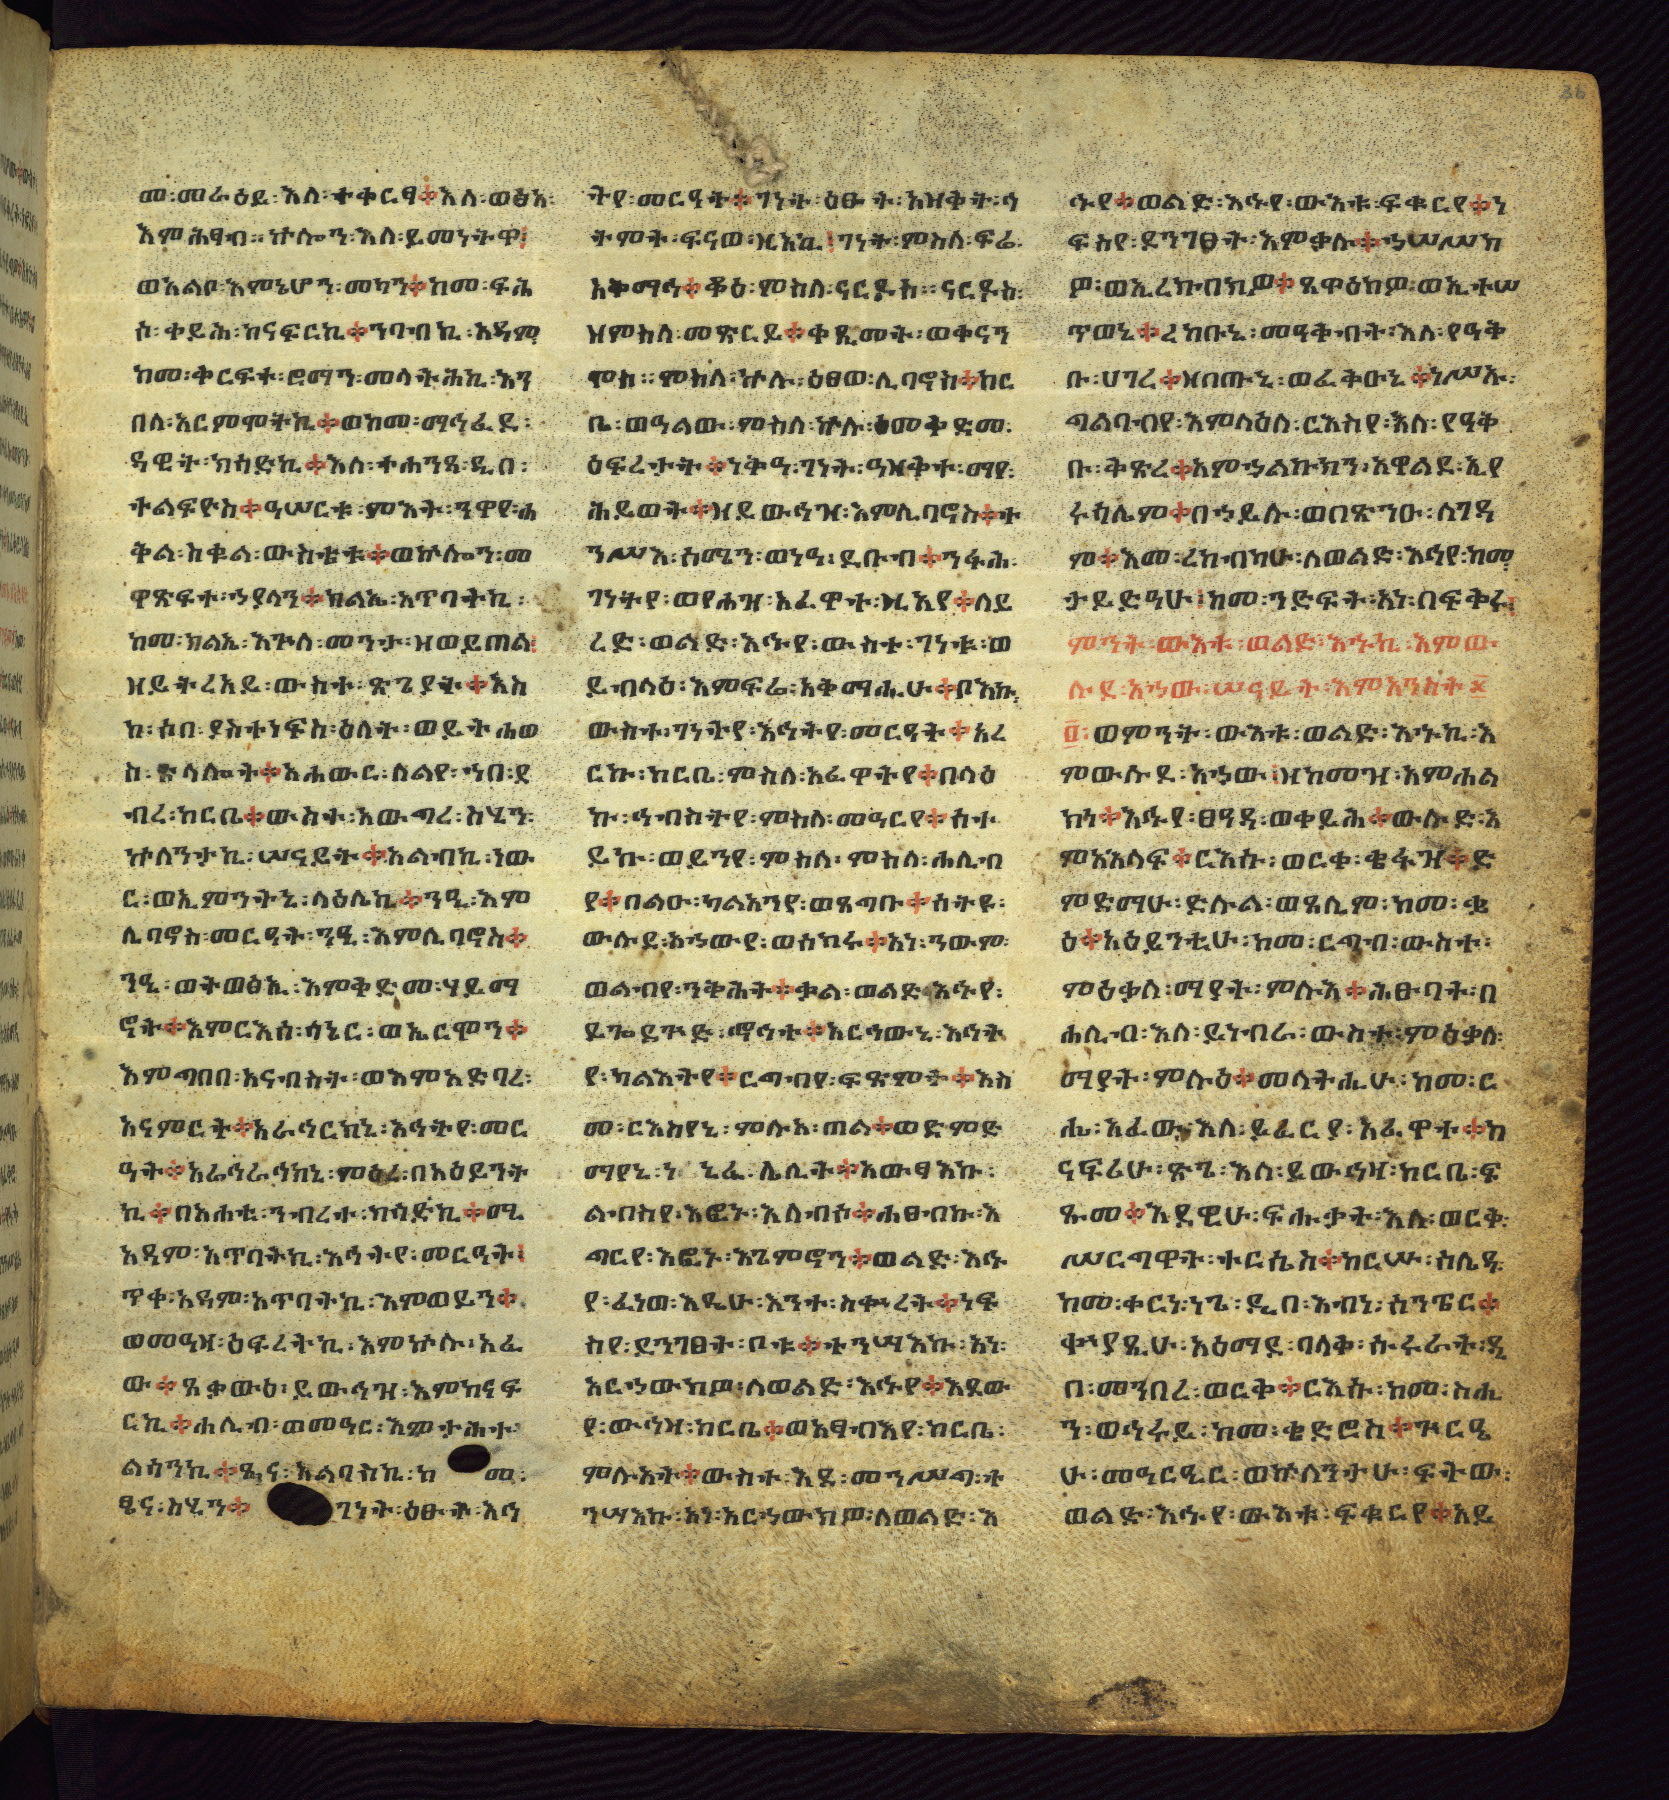 መ፡መራዕይ፡እለ፡ተቀርፃ፨እለ፡ወፅአ፡
እምሕፃብ።ኵሎን፡እለ፡ይመንትዋ፤
ወአልቦ፡እምኔሆን፡መካን፨ከመ፡ፍሕ
ስ፡ቀይሕ፡ከናፍርኪ፨ንባብኪ፡አዳም፡
ከመ፡ቅርፍተ፡ሮማን፡መላትሕኪ፡እን
በለ፡አርምሞትኪ፨ወከመ፡ማኅፈደ፡
ዳዊት፡ክሳድኪ፨እለ፡ተሐንጸ፡ዲበ፡
ተልፍዮስ፨ዓሠርቱ፡ምእት፡ንዋየ፡ሐ
ቅል፡ስቁል፡ውስቴቱ፨ወኵሎን፡መ
ዋጽፍተ፡ኃያላን፨ክልኤ፡አጥባትኪ፡
ከመ፡ክልኤ፡እጕለ፡መንታ፡ዘወይጠል፤
ዘይትረአይ፡ውስተ፡ጽጌያት፨እስ
ከ፡ሶበ፡ያስተነፍስ፡ዕለት፡ወይትሐወ
ስ፡ጽላሎት፨አሐውር፡ሊልየ፡ኀበ፡ደ
ብረ፡ከርቤ፨ውስተ፡አውግረ፡ስሂን፡
ኵለንታኪ፡ሠናይት፨አልብኪ፡ነው
ር፡ወኢምንትኒ፡ላዕሌኪ፨ንዒ፡እም
ሊባኖስ፡መርዓት፡ንዒ፡እምሊባኖስ፨
ንዒ፡ወትወፅኢ፡እምቅድመ፡ሃይማ
ኖት፨እምርእሰ፡ሳኔር፡ወኤርሞን፨
እምግበበ፡አናብስት፡ወእምአድባረ፡
አናምርት፨አራኅርክኒ፡እኅትየ፡መር
ዓት፨አራኅራኅክኒ፡ምዕረ፡በአዕይንት
ኪ፨በአሐቲ፡ንብረተ፡ክሳድኪ፨ሚ
አዳም፡አጥባትኪ፡እኅትየ፡መርዓት፤
ጥቀ፡አዳም፡አጥባትኪ፡እምወይን፨
ወመዓዛ፡ዕፍረትኪ፡እምኵሉ፡አፈ
ው፨ጸቃውዕ፡ይውኅዝ፡እምከናፍ
ርኪ፨ሐሊብ፡ወመዓር፡እምታሕተ፡
ልሳንኪ፨ጼና፡አልባስኪ፡ከመ፡
ጼና፡ስሂን፨ገነት፡ዕፁት፡እኅ
ትየ፡መርዓት፨ገነት፡ዕፁት፡አዘቅት፡ኅ
ትምት፡ፍናወ፡ዚአኪ፤ገነት፡ምስለ፡ፍሬ፡
አቅማኅ፨ቆዕ፡ምስለ፡ናርዶስ።ናርዶስ፡
ዘምስለ፡መጽርይ፨ቀጺመት፡ወቀናን
ሞስ።ምስለ፡ኵሉ፡ዕፀወ፡ሊባኖስ፨ከር
ቤ፡ወዓልው፡ምስለ፡ኵሉ፡ዕመቅድመ፡
ዕፍረታት፨ነቅዓ፡ገነት፡ዓዘቅተ፡ማየ፡
ሕይወት፨ዘይውኅዝ፡እምሊባኖስ፨ተ
ንሥእ፡ሰሜን፡ወነዓ፡ደቡብ፨ንፋሕ፡
ገነትየ፡ወየሐዝ፡አፈዋተ፡ዚአየ፨ለይ
ረድ፡ወልድ፡እኁየ፡ውስተ፡ገነቱ፡ወ
ይብላዕ፡እምፍሬ፡አቅማሒሁ፨ቦእኩ፡
ውስተ፡ገነትየ፡እኅትየ፡መርዓት፨አረ
ርኩ፡ከርቤ፡ምስለ፡አፈዋትየ፨በላዕ
ኩ፡ኅብስትየ፡ምስለ፡መዓርየ፨ሰተ
ይኩ፡ወይንየ፡ምስለ፡ምስለ፡ሐሊብ
ያ፨በልዑ፡ካልአንየ፡ወጸግቡ፨ሰትዩ፡
ውሉደ፡አኀውየ፡ወስከሩ፨አነ፡ንውም፡
ወልብየ፡ንቅሕት፨ቃል፡ወልድ፡እኁየ፡
ይጐድጕድ፡ማኅተ፨አርኅውኒ፡እኅት
የ፡ካልእትየ፨ርግብየ፡ፍጽምት፨እስ
መ፡ርእስየኒ፡ምሉእ፡ጠል፨ወድምድ
ማየኒ፡ነጠብጣበ፡ሌሊት፨አውፃእኩ፡
ልብስየ፡እፎኑ፡እለብሶ፨ሐፀብኩ፡እ
ግርየ፡እፎኑ፡እጌምኖን፨ወልድ፡እኁ
የ፡ፈነወ፡እዴሁ፡እንተ፡ስቍረት፨ነፍ
ስየ፡ደንገፀት፡ቦቱ፨ተንሣእኩ፡አነ፡
አርኀውክዎ፡ለወልድ፡እኁየ፨እደው
የ፡ውኅዛ፡ከርቤ፨ወአፃብእየ፡ከርቤ፡
ምሉአት፨ውስተ፡እደ፡መንሠግ፡ተ
ንሣእኩ፡አነ፡አርኀውክዎ፡ለወልድ፡እ
ኁየ፨ወልድ፡እኁየ፡ውእቱ፡ፍቁርየ፨ነ
ፍስየ፡ደንገፀት፡እምቃሉ፨ኀሠሥክ
ዎ፡ወኢረኩብክዎ፨ጸዋዕክዎ፡ወኢተሠ
ጥወኒ፨ረከቡኒ፡መዓቅብት፡እለ፡የዓቅ
ቡ፡ሀገረ፨ዘበጡኒ፡ወፈቅዑኒ፨ነሥኡ፡
ግልባብየ፡እምላዕለ፡ርእስየ፡እለ፡የዓቅ
ቡ፡ቅጽረ፨አምኃልኩክን፡አዋልደ፡ኢየ
ሩሳሌም፨በኃይሉ፡ወበጽንዑ፡ለገዳ
ም፨እመ፡ረከብካሁ፡ለወልድ፡እኁየ፡ከመ፡
ታይድዓሁ፡ከመ፡ንድፍት፡አነ፡በፍቅሩ፤
ምንት፡ውእቱ፡ወልድ፡እኁኪ፡እምው
ሉደ፡አኀው፡ሠናይት፡እምአንስት፨
፬፡ወምንት፡ውእቱ፡ወልድ፡እኁኪ፡እ
ምውሉደ፡አኀው፡ዘከመዝ፡አምሐል
ክነ፨እኁየ፡ፀዓዳ፡ወቀይሕ፨ውሉድ፡እ
ምአእላፍ፨ርእሱ፡ወርቀ፡ቄፋዝ፨ድ
ምድማሁ፡ድሉል፡ወጸሊም፡ከመ፡ቋ
ዕ፨አዕይንቲሁ፡ከመ፡ርግብ፡ውስተ፡
ምዕቃለ፡ማያት፡ምሉእ፨ሕፁባት፡በ
ሐሊብ፡እለ፡ይነብራ፡ውስተ፡ምዕቃለ፡
ማያት፡ምሉዕ፨መላትሒሁ፡ከመ፡ር
ሔ፡አፈው፡እለ፡ይፈርያ፡አፈዋተ፨ከ
ናፍሪሁ፡ጽጌ፡እለ፡ይውኅዛ፡ከርቤ፡ፍ
ጹመ፨እደዊሁ፡ፍሑቃት፡እለ፡ወርቅ፡
ሠርግዋት፡ተርሴስ፨ከርሡ፡ሰሌዳ፡
ከመ፡ቀርነ፡ነጌ፡ዲበ፡እብነ፡ሰንፔር፨
ቍያጺሁ፡አዕማደ፡ባላቅ፡ሱሩራት፡ዲ
በ፡መንበረ፡ወርቅ፨ርእሱ፡ከመ፡ስሒ
ን፡ወኅሩይ፡ከመ፡ቄድሮስ፨ጕርዔ
ሁ፡መዓርዒር፡ወኵለንታሁ፡ፍትው፡
ወልድ፡እኁየ፡ውእቱ፡ፍቁርየ፨አይ